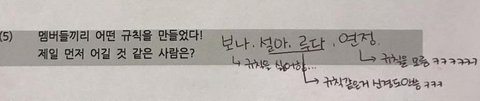 (5) 멤버들끼리 어떤 규칙을 만들었다!
제일 먼저 어길 것 같은 사람은?
보나. 설아. 루다. 연정.
↳ 규칙을 싫어함...
↳ 규칙같은거 신경도안씀 ㅋㅋㅋ
↳ 규칙을 모름 ㅋㅋㅋㅋㅋㅋ